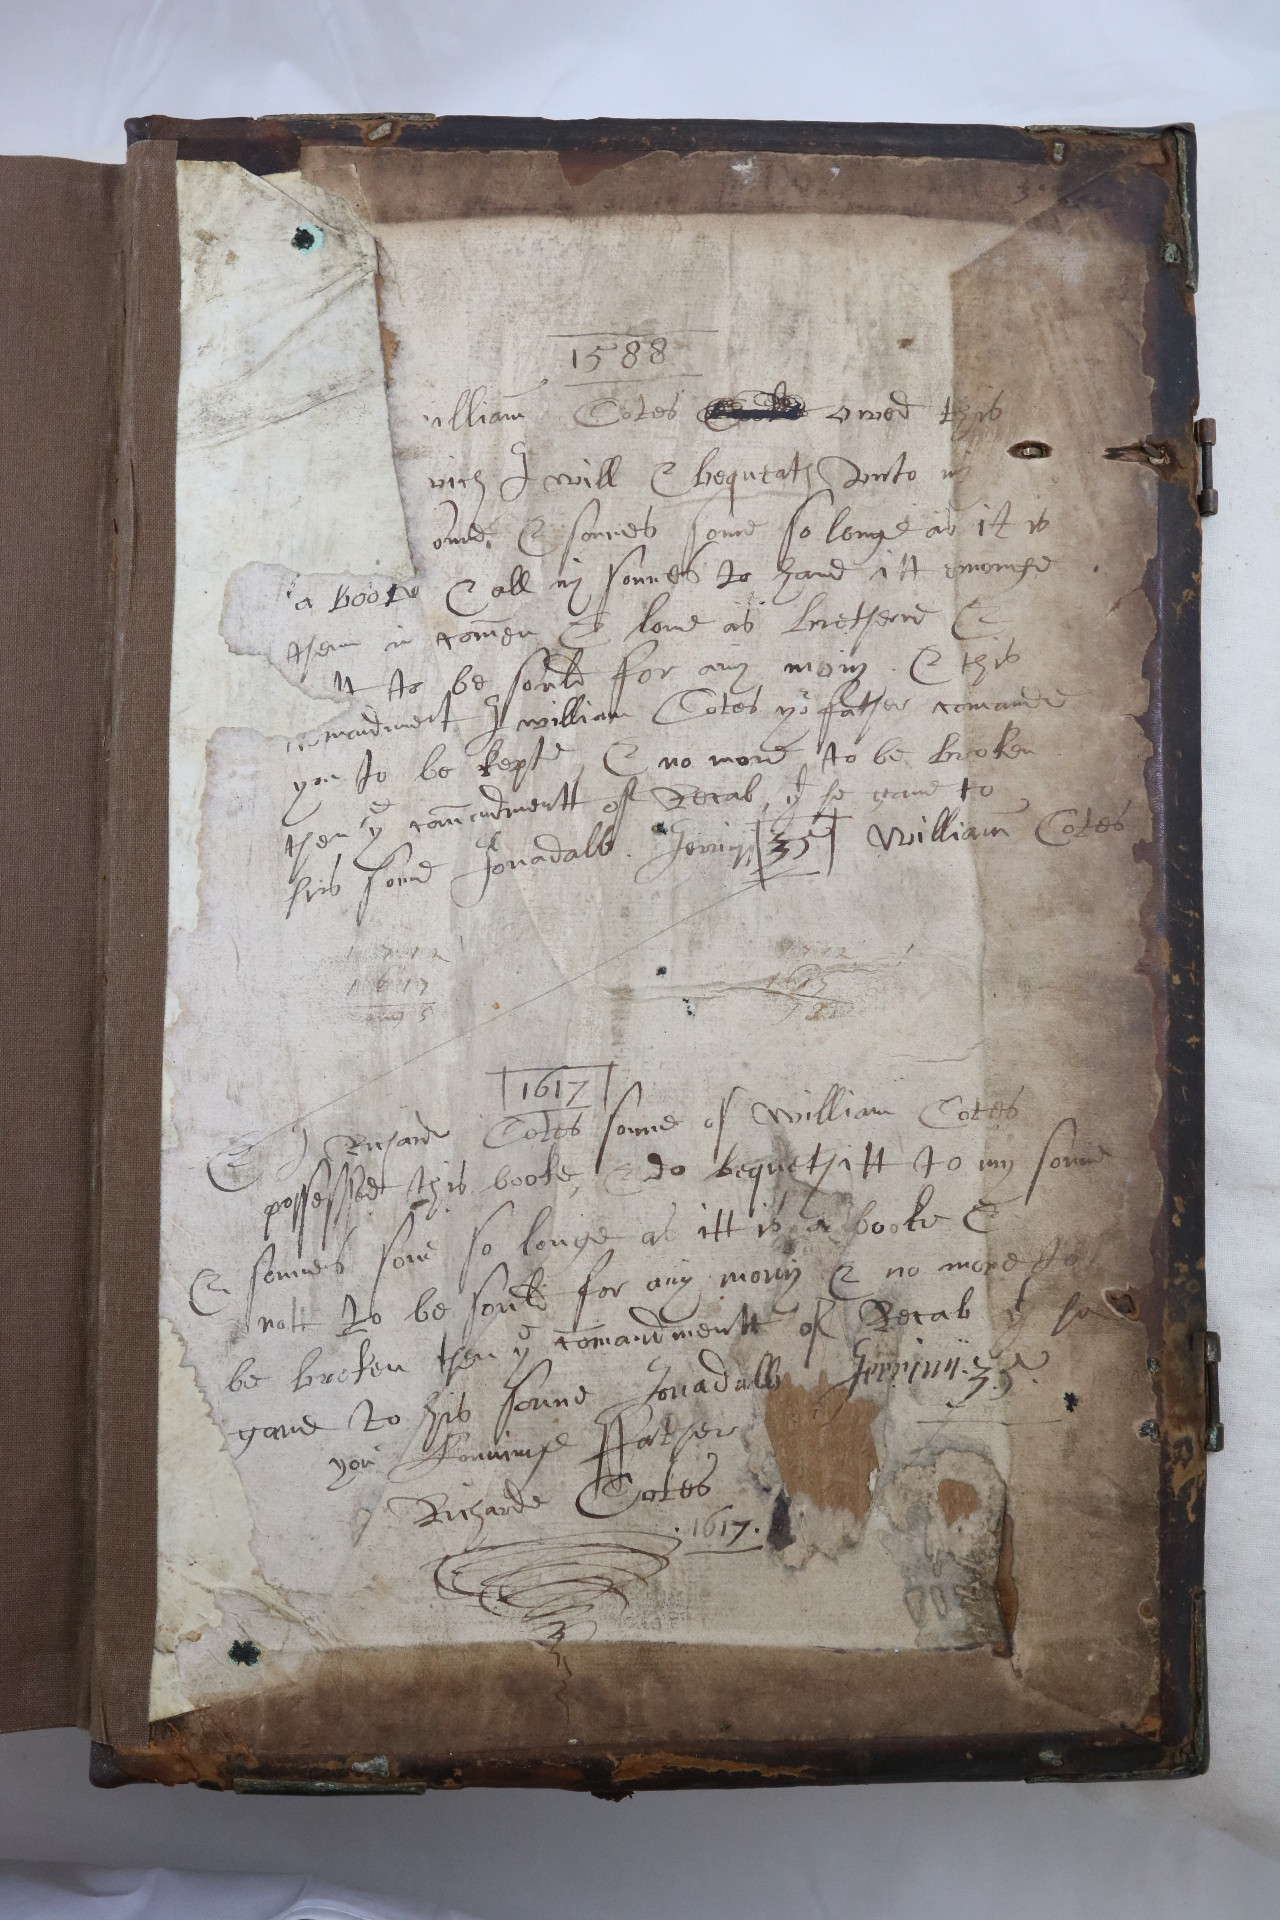 1588
william Cotes owed this
wich I will & bequeath vnto my
sonne, & sonnes sonne so longe as it is
a booke & all my sonnes to haue itt amongse
them in comen & loue as bretherne &
tt to be sould for any mony. & this
comandment I william Cotes yor father comande
you to be kepte, & no more to be broken
then ye comandmentt of Recab, yt he gaue to
his sonne Jonadabb. Jerimi 35 William Cotes
1712
1617
1712
1617
1617
& I Richard Cotes sonne of William Cotes
possessed this booke, & do bequeth itt to my sonne
& sonnes sonne so longe as itt is a booke &
nott to be sould for any mony & no more to
be broken then ye comandmentt of Recab yt he
gaue to his sonne Jonadabb Jerimi: 35.
your louuinge ffather
Richarde Cotes
.1617.